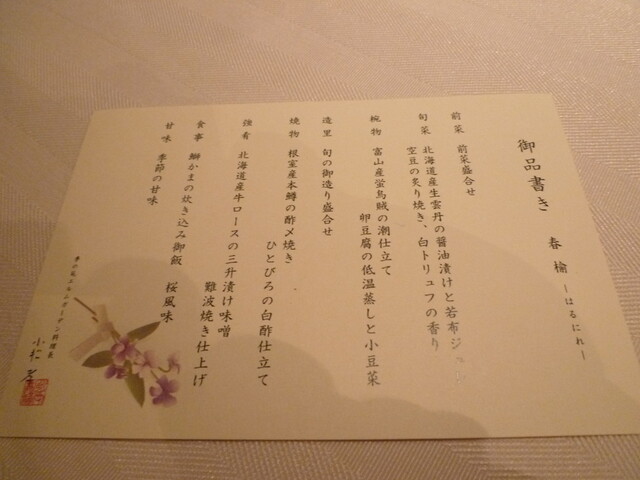 御品書き
春楡 ーはるにれー
前菜 前菜盛合せ
旬菜 北海道産生雲丹の醤油漬けと若布ジ
空豆の炙り焼き、白トリュフの香り
椀物 富山産蛍烏賊の潮仕立て
卵豆腐の低温蒸しと小豆菜
造里 旬の御造り盛合せ
焼物 根室産本鱒の酢〆焼き
ひとびろの白酢仕立て
強肴 北海道産牛ロースの三升漬け味噌
難波焼き仕上げ
食事 鰤かまの炊き込み御飯 桜風味
甘味 季節の甘味
夢の庵エルムガーデン料理長
小松